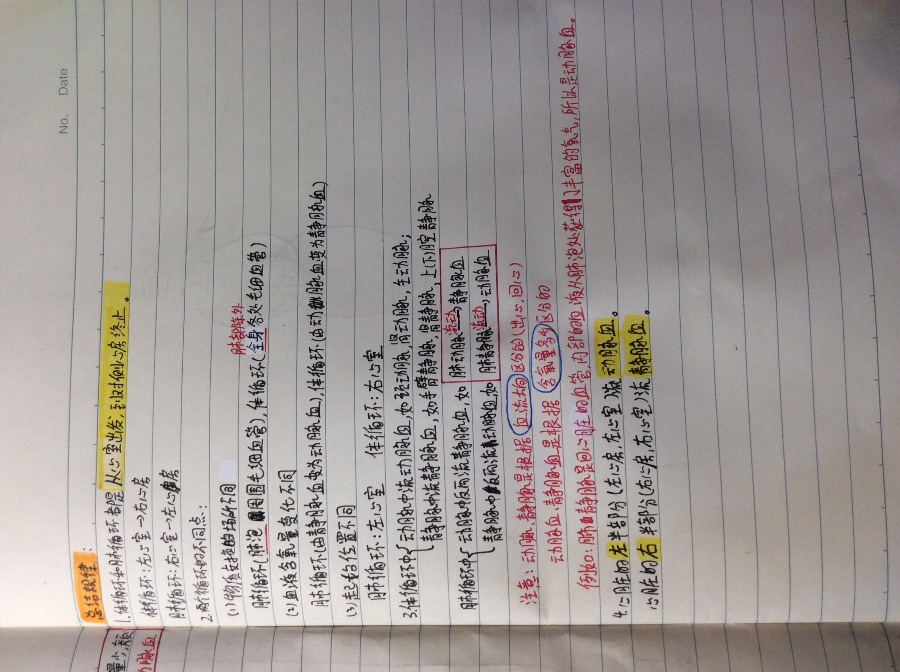 No.
Date
总结规律:
1.体循环和肺循环都是从心室出发,到对侧心房终止。
体循环:左心室→右心房
肺循环:右心室→左心房
2.两个循环的不同点:
(1)物质交换的场所不同
肺部除外
肺循环(肺泡周围毛细血管),体循环(全身各处毛细血管)
(2)血液含氧量变化不同
肺循环(由静脉血变为动脉血),体循环(由动脉血变为静脉血)
(3)走者的位置不同
肺循环:左心室 体循环:右心室
3.体循环中{动脉中流动脉血,如颈动脉,肾动脉,主动脉;
静脉中流静脉血,如手臂静脉,肾静脉,上(下)腔静脉
肺循环中{动脉中反而流静脉血,如肺动脉流动→静脉血
静脉中反而流动脉血,如肺静脉流动→动脉血
注意:动脉、静脉是根据血流方向区分的(出心,回心)
动脉血、静脉血是根据含氧量多少区分的
例如:肺静脉是回心脏的血管,内部的血液从肺泡处获得了丰富的氧气,所以是动脉血。
4.心脏的左半部分(左心房,左心室)流动脉血。
心脏的右半部分(右心房,右心室)流静脉血。
量少,颜
动脉血